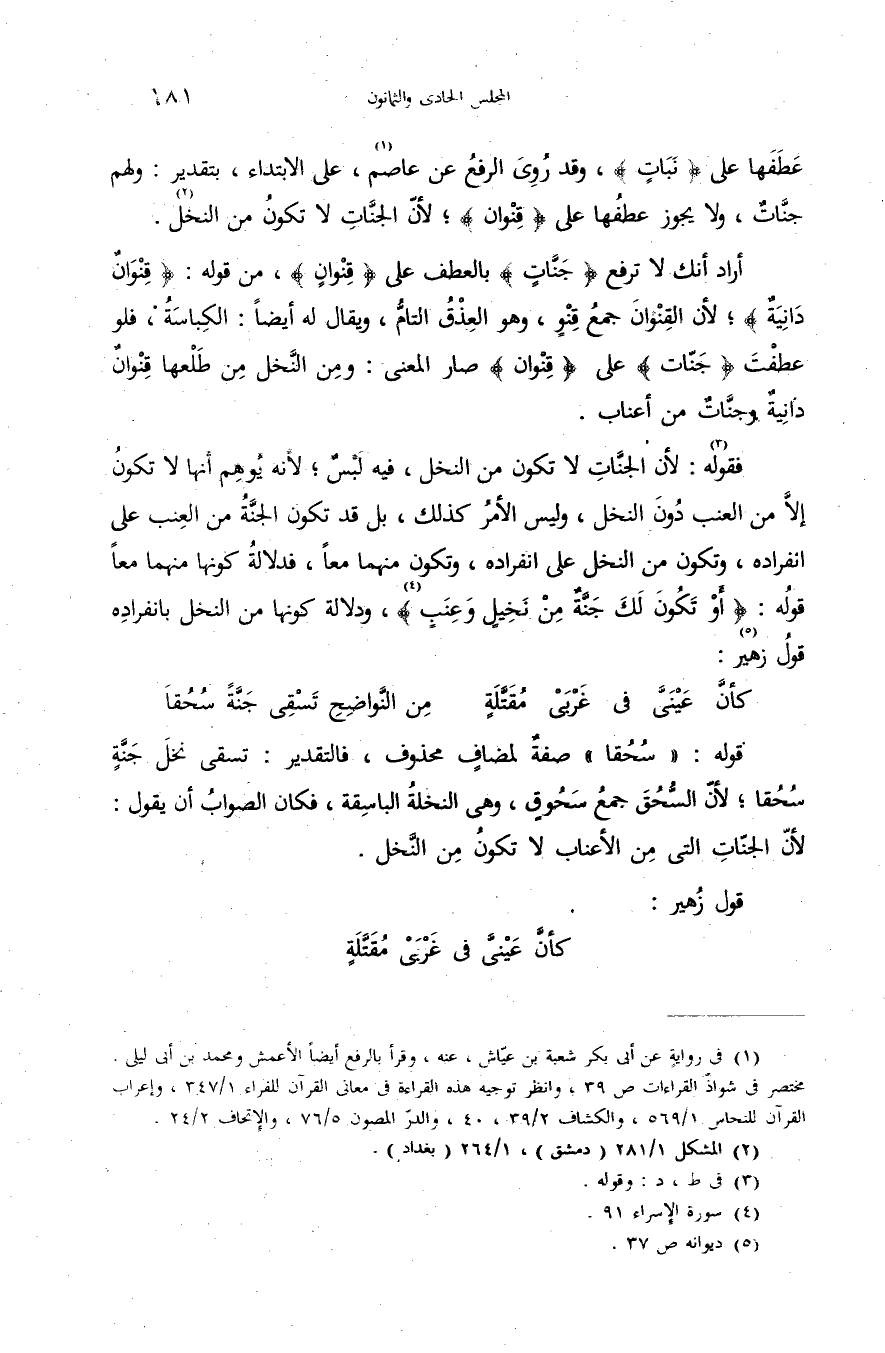 المجلس الحادى والثمانون ١٨١
عَطَفَها على ﴿ نَبَاتٍ ﴾ ، وقد رُوِىَ الرفعُ عن عاصم(١) ، على الابتداء ، بتقدير : ولهم
جنَّاتٌ ، ولا يجوز عطفُها على ﴿ قِنْوان ﴾ ؛ لأنّ الجنَّاتِ لا تكونُ من النخل(٢) .
أراد أنك لا ترفع ﴿ جَنَّاتٍ ﴾ بالعطف على ﴿ قِنْوانٍ ﴾ ، من قوله : ﴿ قِنْوَانٌ
دَانِيَةٌ ﴾ ؛ لأن القِنْوانَ جمعُ قِنْوٍ ، وهو العِذْقُ التامُّ ، ويقال له أيضاً : الكِباسَةُ ، فلو
عطفْتَ ﴿ جَنّات ﴾ على ﴿ قِنْوان ﴾ صار المعنى : ومِن النَّخل مِن طَلْعها قِنْوانٌ
دانِيةٌ وجنَّاتٌ من أعناب .
فقولُه(٣) : لأن الجنَّاتِ لا تكون من النخل ، فيه لَبْسٌ ؛ لأنه يُوهِم أنها لا تكونُ
إلاَّ من العنب دُونَ النخل ، وليس الأمرُ كذلك ، بل قد تكون الجنَّةُ من العِنب على
انفراده ، وتكون من النخل على انفراده ، وتكون منهما معاً ، فدلالةُ كونها منهما معاً
قولُه : ﴿ أَوْ تَكُونَ لَكَ جَنَّةٌ مِنْ نَخِيلٍ وَعِنَبٍ ﴾(٤) ، ودلالة كونها من النخل بانفرادِه
قولُ زهير(٥) :
كأنَّ عَيْنَىَّ فى غَرْبَىْ مُقَتَّلَةٍ مِن النَّواضِحِ تَسْقِى جَنَّةً سُحُقاَ
قوله : « سُحُقا » صفةٌ لمضافٍ محذوف ، فالتقدير : تسقى نخلَ جَنَّةٍ
سُحُقا ؛ لأنّ السُّحُقَ جمعُ سَحُوقٍ ، وهى النخلةُ الباسِقة ، فكان الصوابُ أن يقول :
لأنّ الجنّاتِ التى مِن الأعناب لا تكونُ مِن النَّخل .
قول زُهير :
كأنَّ عَيْنىَّ فى غَرْبَىْ مُقَتَّلَةٍ
(١) فى روايةٍ عن أبى بكر شعبة بن عيّاش ، عنه ، وقرأ بالرفع أيضاً الأعمش ومحمد بن أبى ليلى .
مختصر فى شواذّ القراءات ص ٣٩ ، وانظر توجيه هذه القراءة فى معانى القرآن للفراء ٣٤٧/١ ، وإعراب
القرآن للنحاس ٥٦٩/١ ، والكشاف ٣٩/٢ ، ٤٠ ، والدرّ المصون ٧٦/٥ ، والإتحاف ٢٤/٢ .
(٢) المشكل ٢٨١/١ ( دمشق ) ، ٢٦٤/١ ( بغداد ) .
(٣) فى ط ، د : وقوله .
(٤) سورة الإسراء ٩١ .
(٥) ديوانه ص ٣٧ .